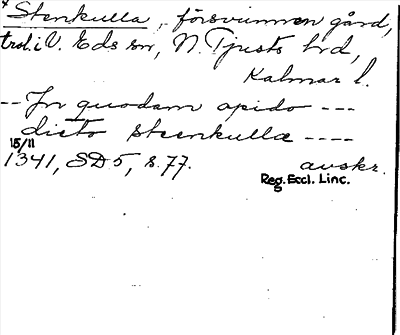 * Stenkulla, försvunnen gård,
trol. i V. Eds sn, N. Tjusts hrd,
Kalmar l.
-- Jn quodam opido ---
dicto steenkulla ----
15/11
1341, SD5, s. 77. avskr.
Reg. Eccl. Linc.